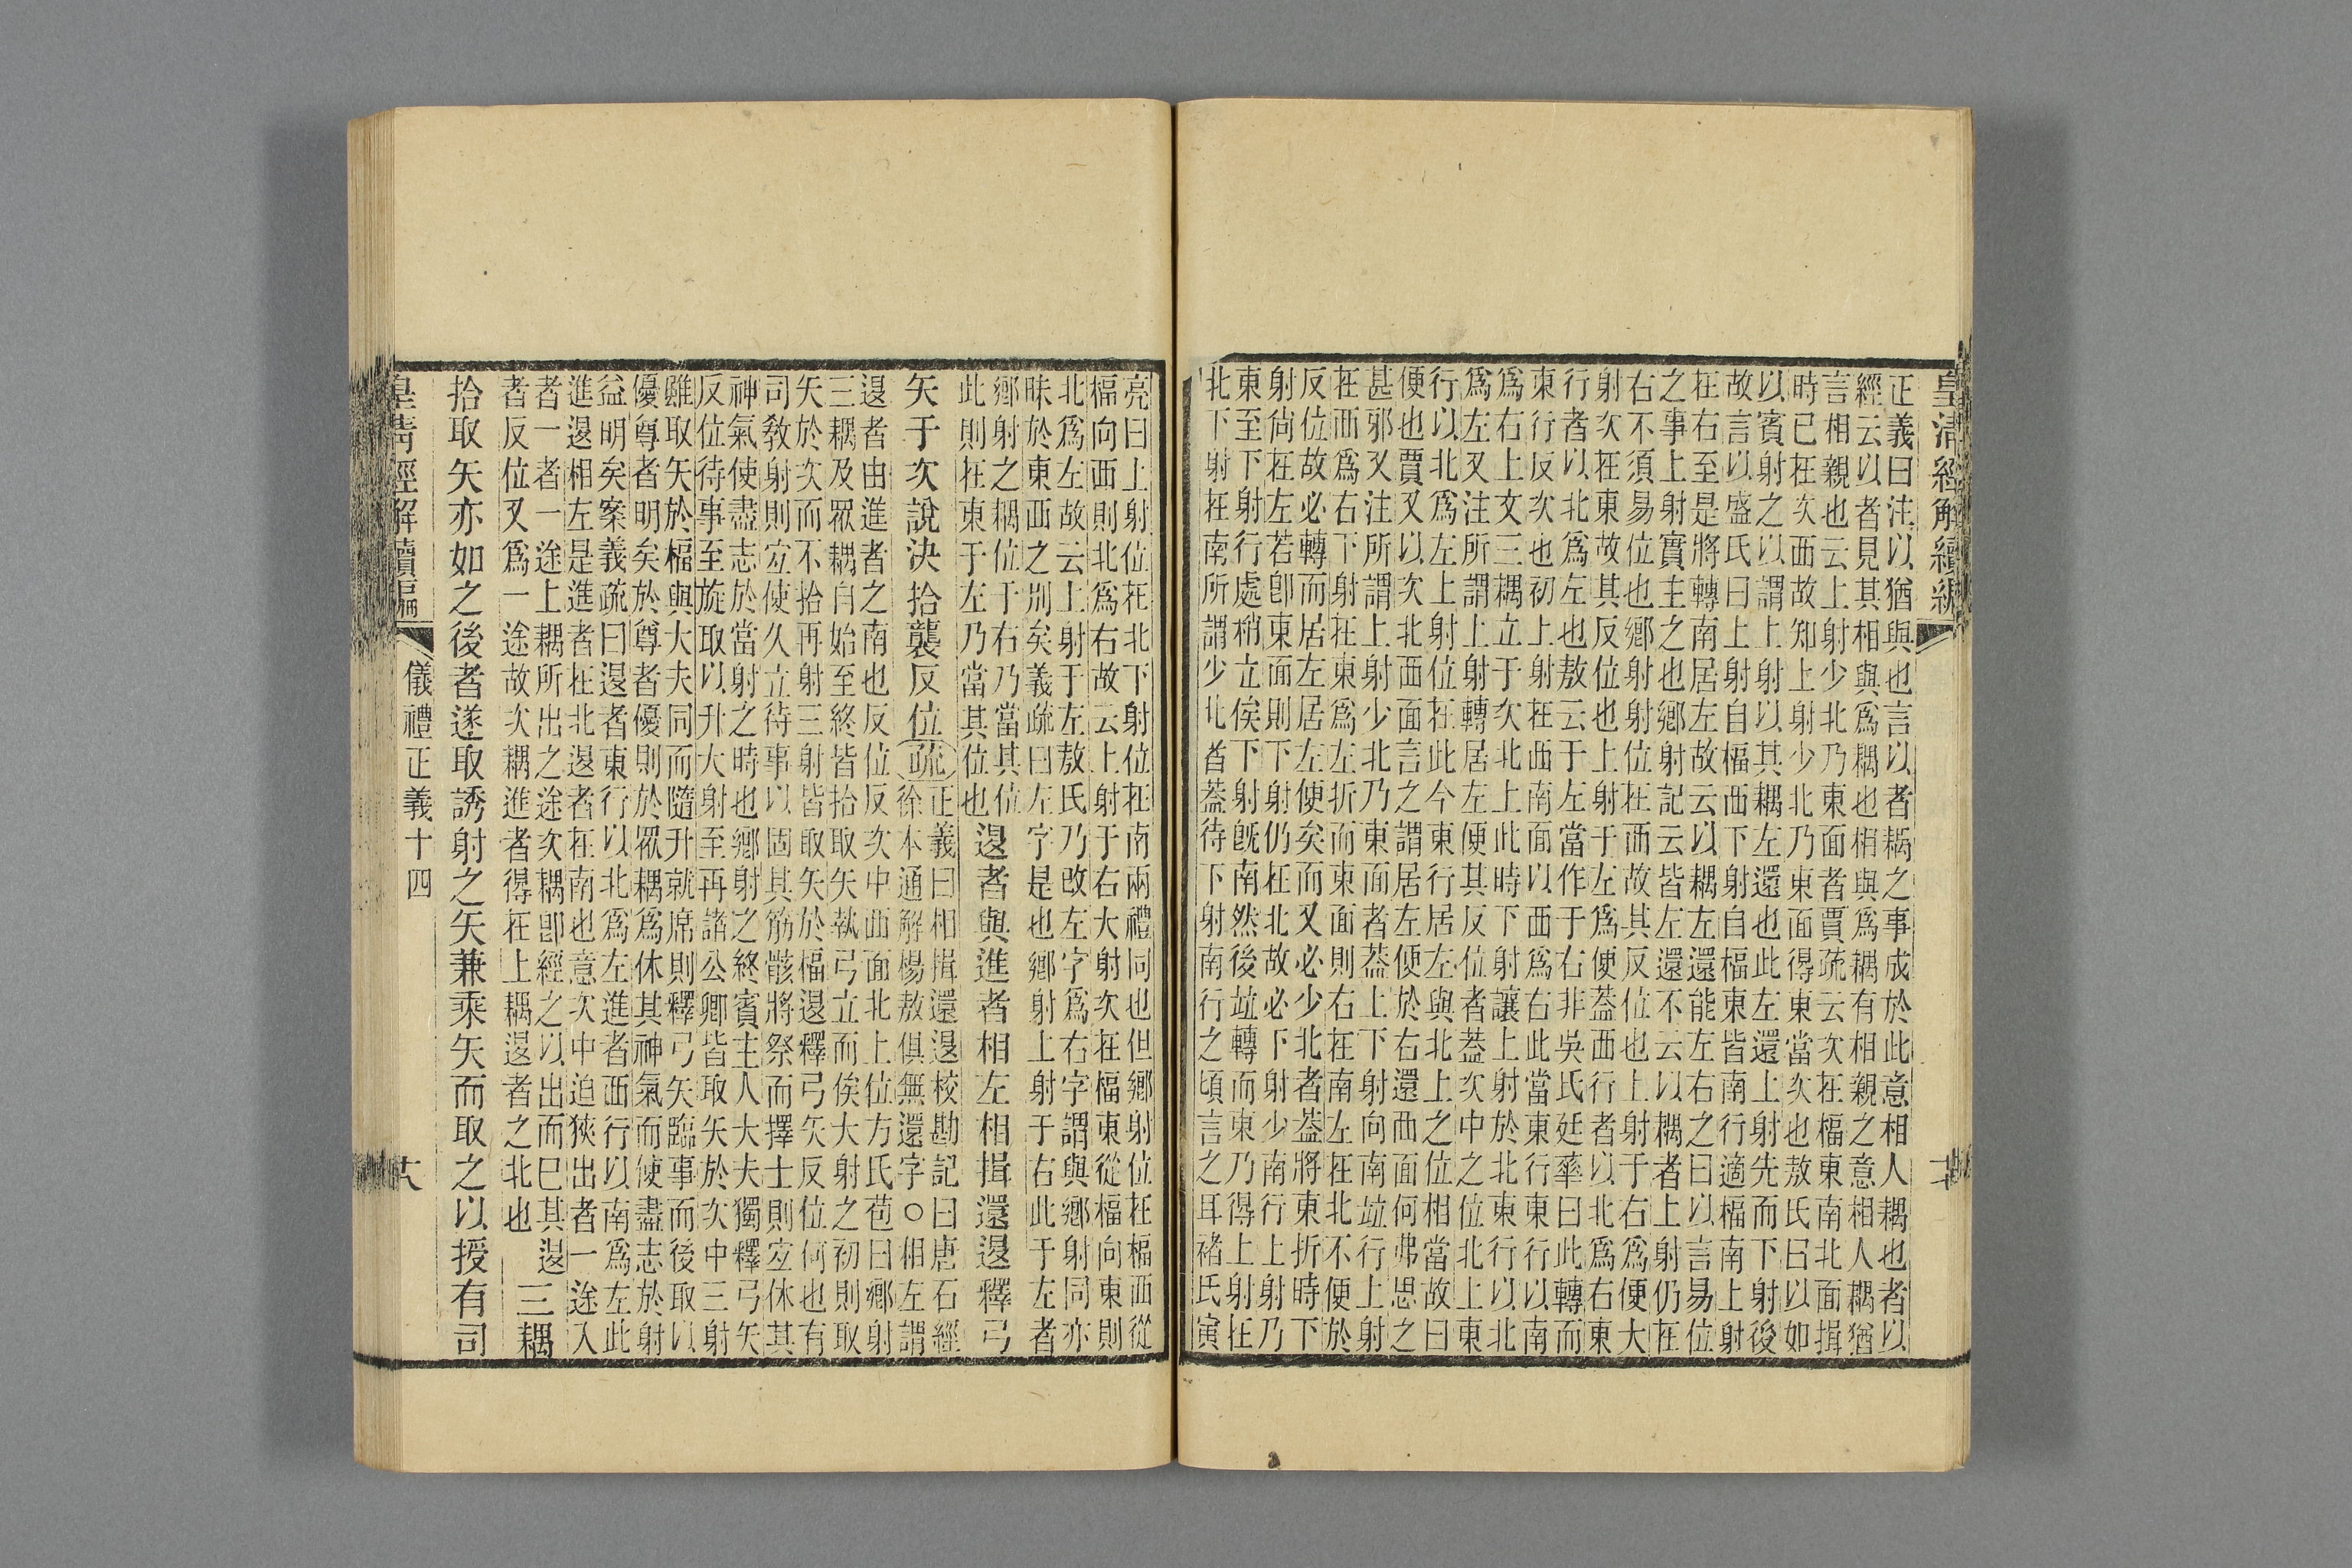 皇清經解續編
正義曰注以猶與也言以者耦之事成於此意相人耦也者以
經云以者見其相與爲耦也梢與爲耦有相親之意相人耦猶
言相親也云上射少北乃東面者賈疏云次在楅東南北面揖
時已在次西故知上射少北乃東面得東當次也敖氏曰以如
以賓射之以謂上射以其耦左還也此左還上射先而下射後
故言以盛氏曰上射自楅西下射自楅東皆南行適楅南上射
在右至是將轉南居左故云以耦左還能左右之曰以言易位
之事上射實主之也鄉射記云皆左還不云以耦者上射仍在
右不須易位也鄉射位在西故其反位也上射于右爲便大
射次在東故其反位也上射于左爲便葢西行者以北爲右東
行者以北爲左也敖云于左當作于右非吳氏廷華曰此轉而
東行反次也初上射在西南面以西爲右此當東行東行以南
爲右上文三耦立于次北上此時下射讓上射於北東行以北
爲左又注所謂上射轉居左便其反位者葢次中之位北上東
行以北爲左上射位在此今東行居左與北上之位相當故曰
便也賈又以次北西面言之謂居左便於右還西面何弗思之
甚邪又注所謂上射少北乃東面者葢上下射向南竝行上射
在西爲右下射在東爲左折而東面則右在南左在北不便於
反位故必轉而居左居左便矣而又必少北者葢將東折時下
射尙在左若卽東面則下射仍在北故必下射少南行上射乃
東至下射行處梢立俟下射旣南然後竝轉而東乃得上射在
北下射在南所謂少北者葢待下射南行之頃言之耳褚氏寅
亮曰上射位在北下射位在南兩禮同也但鄉射位在楅西從
楅向西則北爲右故云上射于右大射次在楅東從楅向東則
北爲左故云上射于左敖氏乃改左字爲右字謂與鄉射同亦
昧於東西之別矣義疏曰左字是也鄉射上射于右此于左者
鄉射之耦位于右乃當其位
此則在東于左乃當其位也
退者與進者相左相揖還退釋弓
矢于次說決拾襲反位
疏
正義曰相揖還退校勘記曰唐石經
徐本通解楊敖俱無還字○相左謂
退者由進者之南也反位反次中西面北上位方氏苞曰鄉射
三耦及眾耦自始至終皆拾取矢執弓立而俟大射之初則取
矢於次而不拾再射三射皆取矢於楅退釋弓矢反位何也有
司教射則宜使久立待事以固其筋骸將祭而擇士則宜休其
神氣使盡志於當射之時也鄉射之終賓主人大夫獨釋弓矢
反位待事至旋取以升大射至再諸公卿皆取矢於次中三射
雖取矢於楅與大夫同而隨升就席則釋弓矢臨事而後取以
優尊者明矣於尊者優則於眾耦爲休其神氣而使盡志於射
益明矣案義疏曰退者東行以北爲左進者西行以南爲左此
進退相左是進者在北退者在南也意次中迫狹出者一途入
者一者一途上耦所出之途次耦卽經之以出而已其退
者反位又爲一途故次耦進者得在上耦退者之北也
三耦
拾取矢亦如之後者遂取誘射之矢兼乘矢而取之以授有司
皇清經解續編
儀禮正義十四
十八